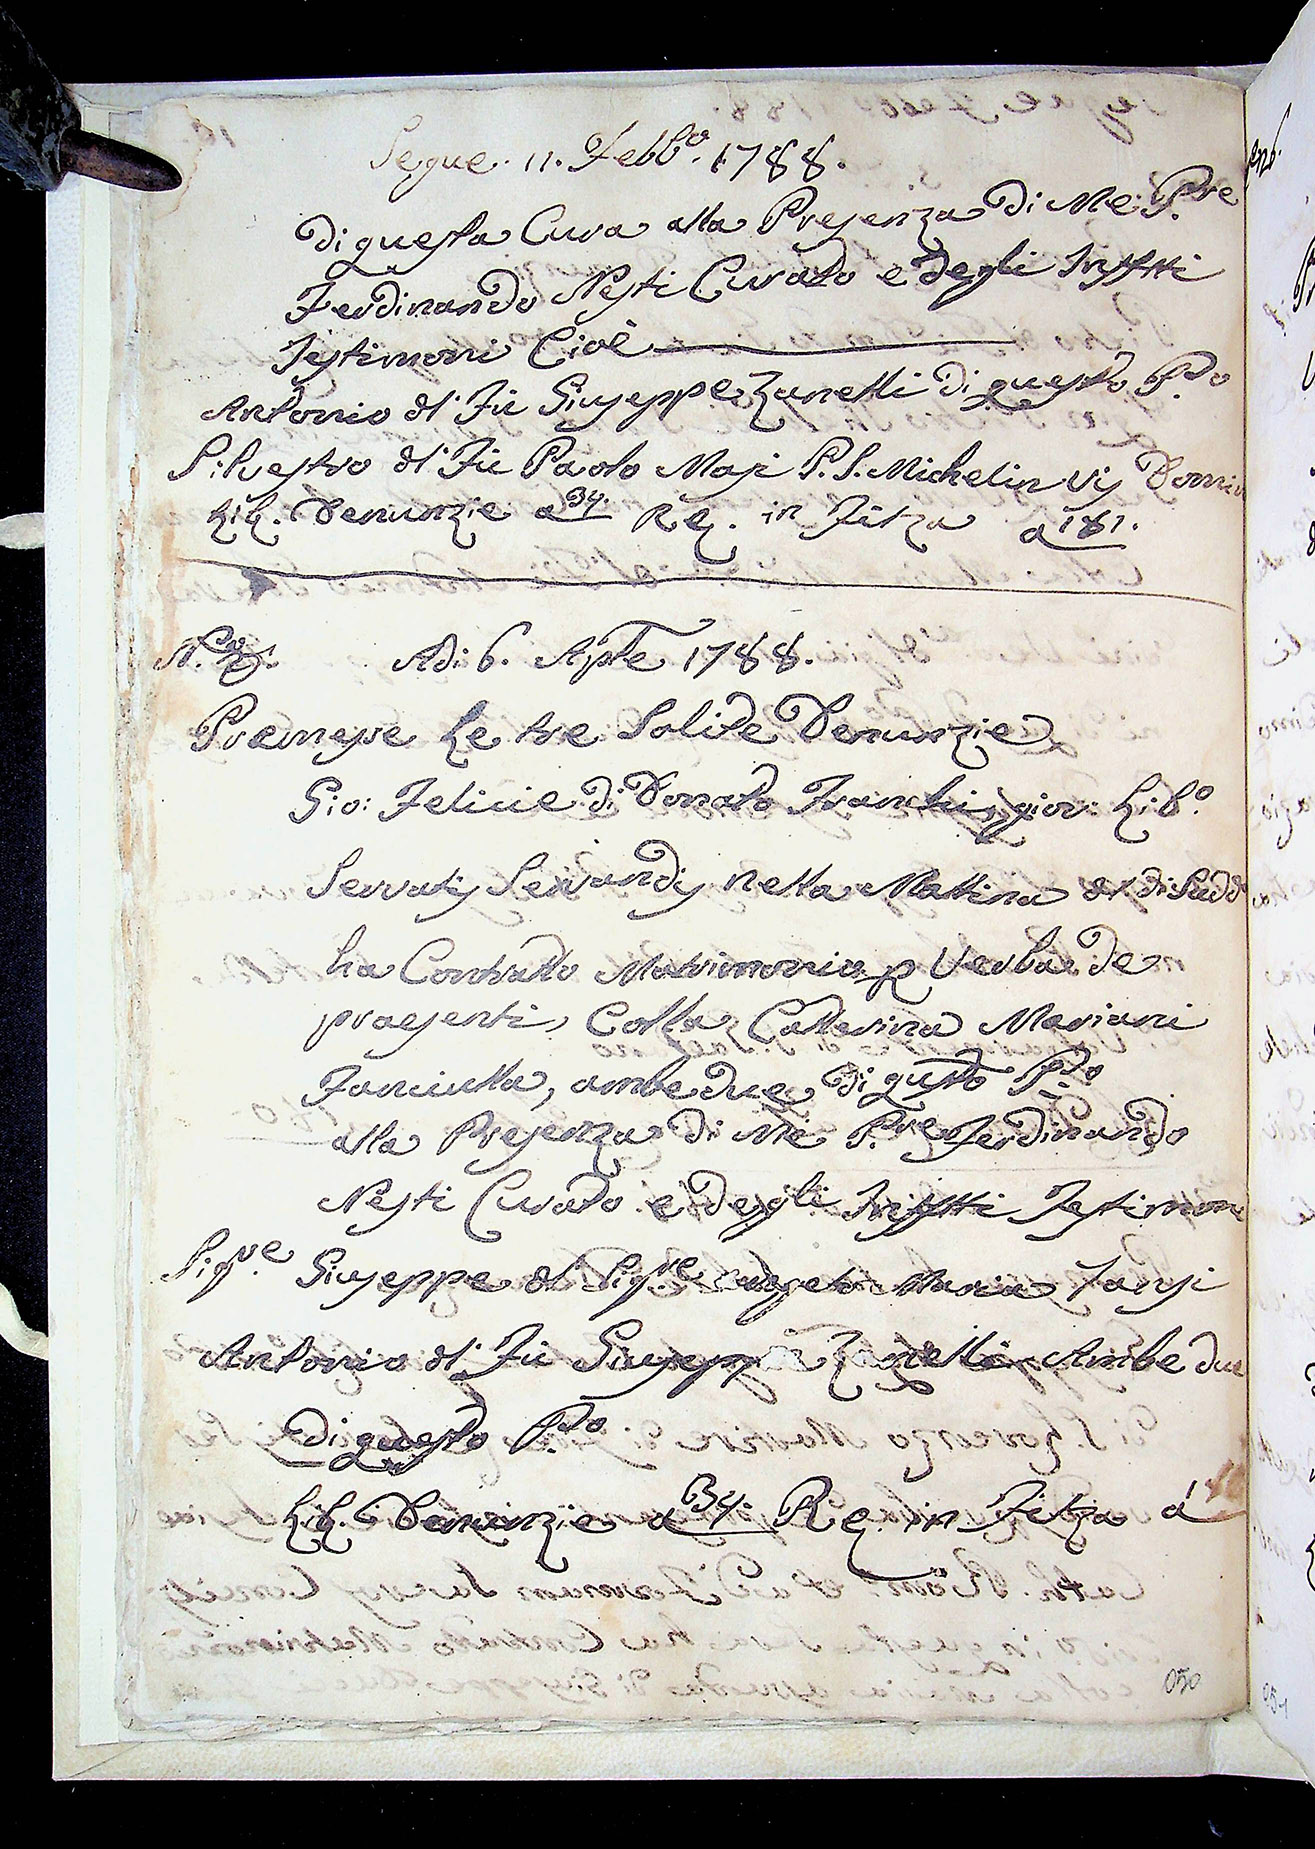 Segue. 11. Febb.o 1788.
Di questa Cura alla Presenza Di Me P.re
Ferdinando Nesti Curato e degli Infftti
Testimoni Cioè
Antonio dl Fù Giuseppe Zanetti Di questo P.lo
Silvestro dl Fù Paolo Masi P. S. Michel in Vis Domin
Lib. Denunzie a 34. Req. in Filza a 181.
N.o
Adi 6. Aple 1788.
Premesse Le tre Solite Denunzie
Gio: Felicie di Donato Franchi giov: Lib.o
Servatis Servandis nella Mattina dl dì Sudd.o
ha Contratto Matrimonio p Verba de
praesenti, Colla Catterina Mariani
Fanciulla, ambedue di qusto P.lo
alla Presenza di Me P.re Ferdinando
Nesti Curato e degli Infftti Testimoni
Sig.re Giuseppe dl Sig.re Angelo Maria Tansi
Antonio dl Fù Giuseppe Zanetti Ambe due
di questo P.lo
Lib. Denunzie a 34. Req. in Filza a
050